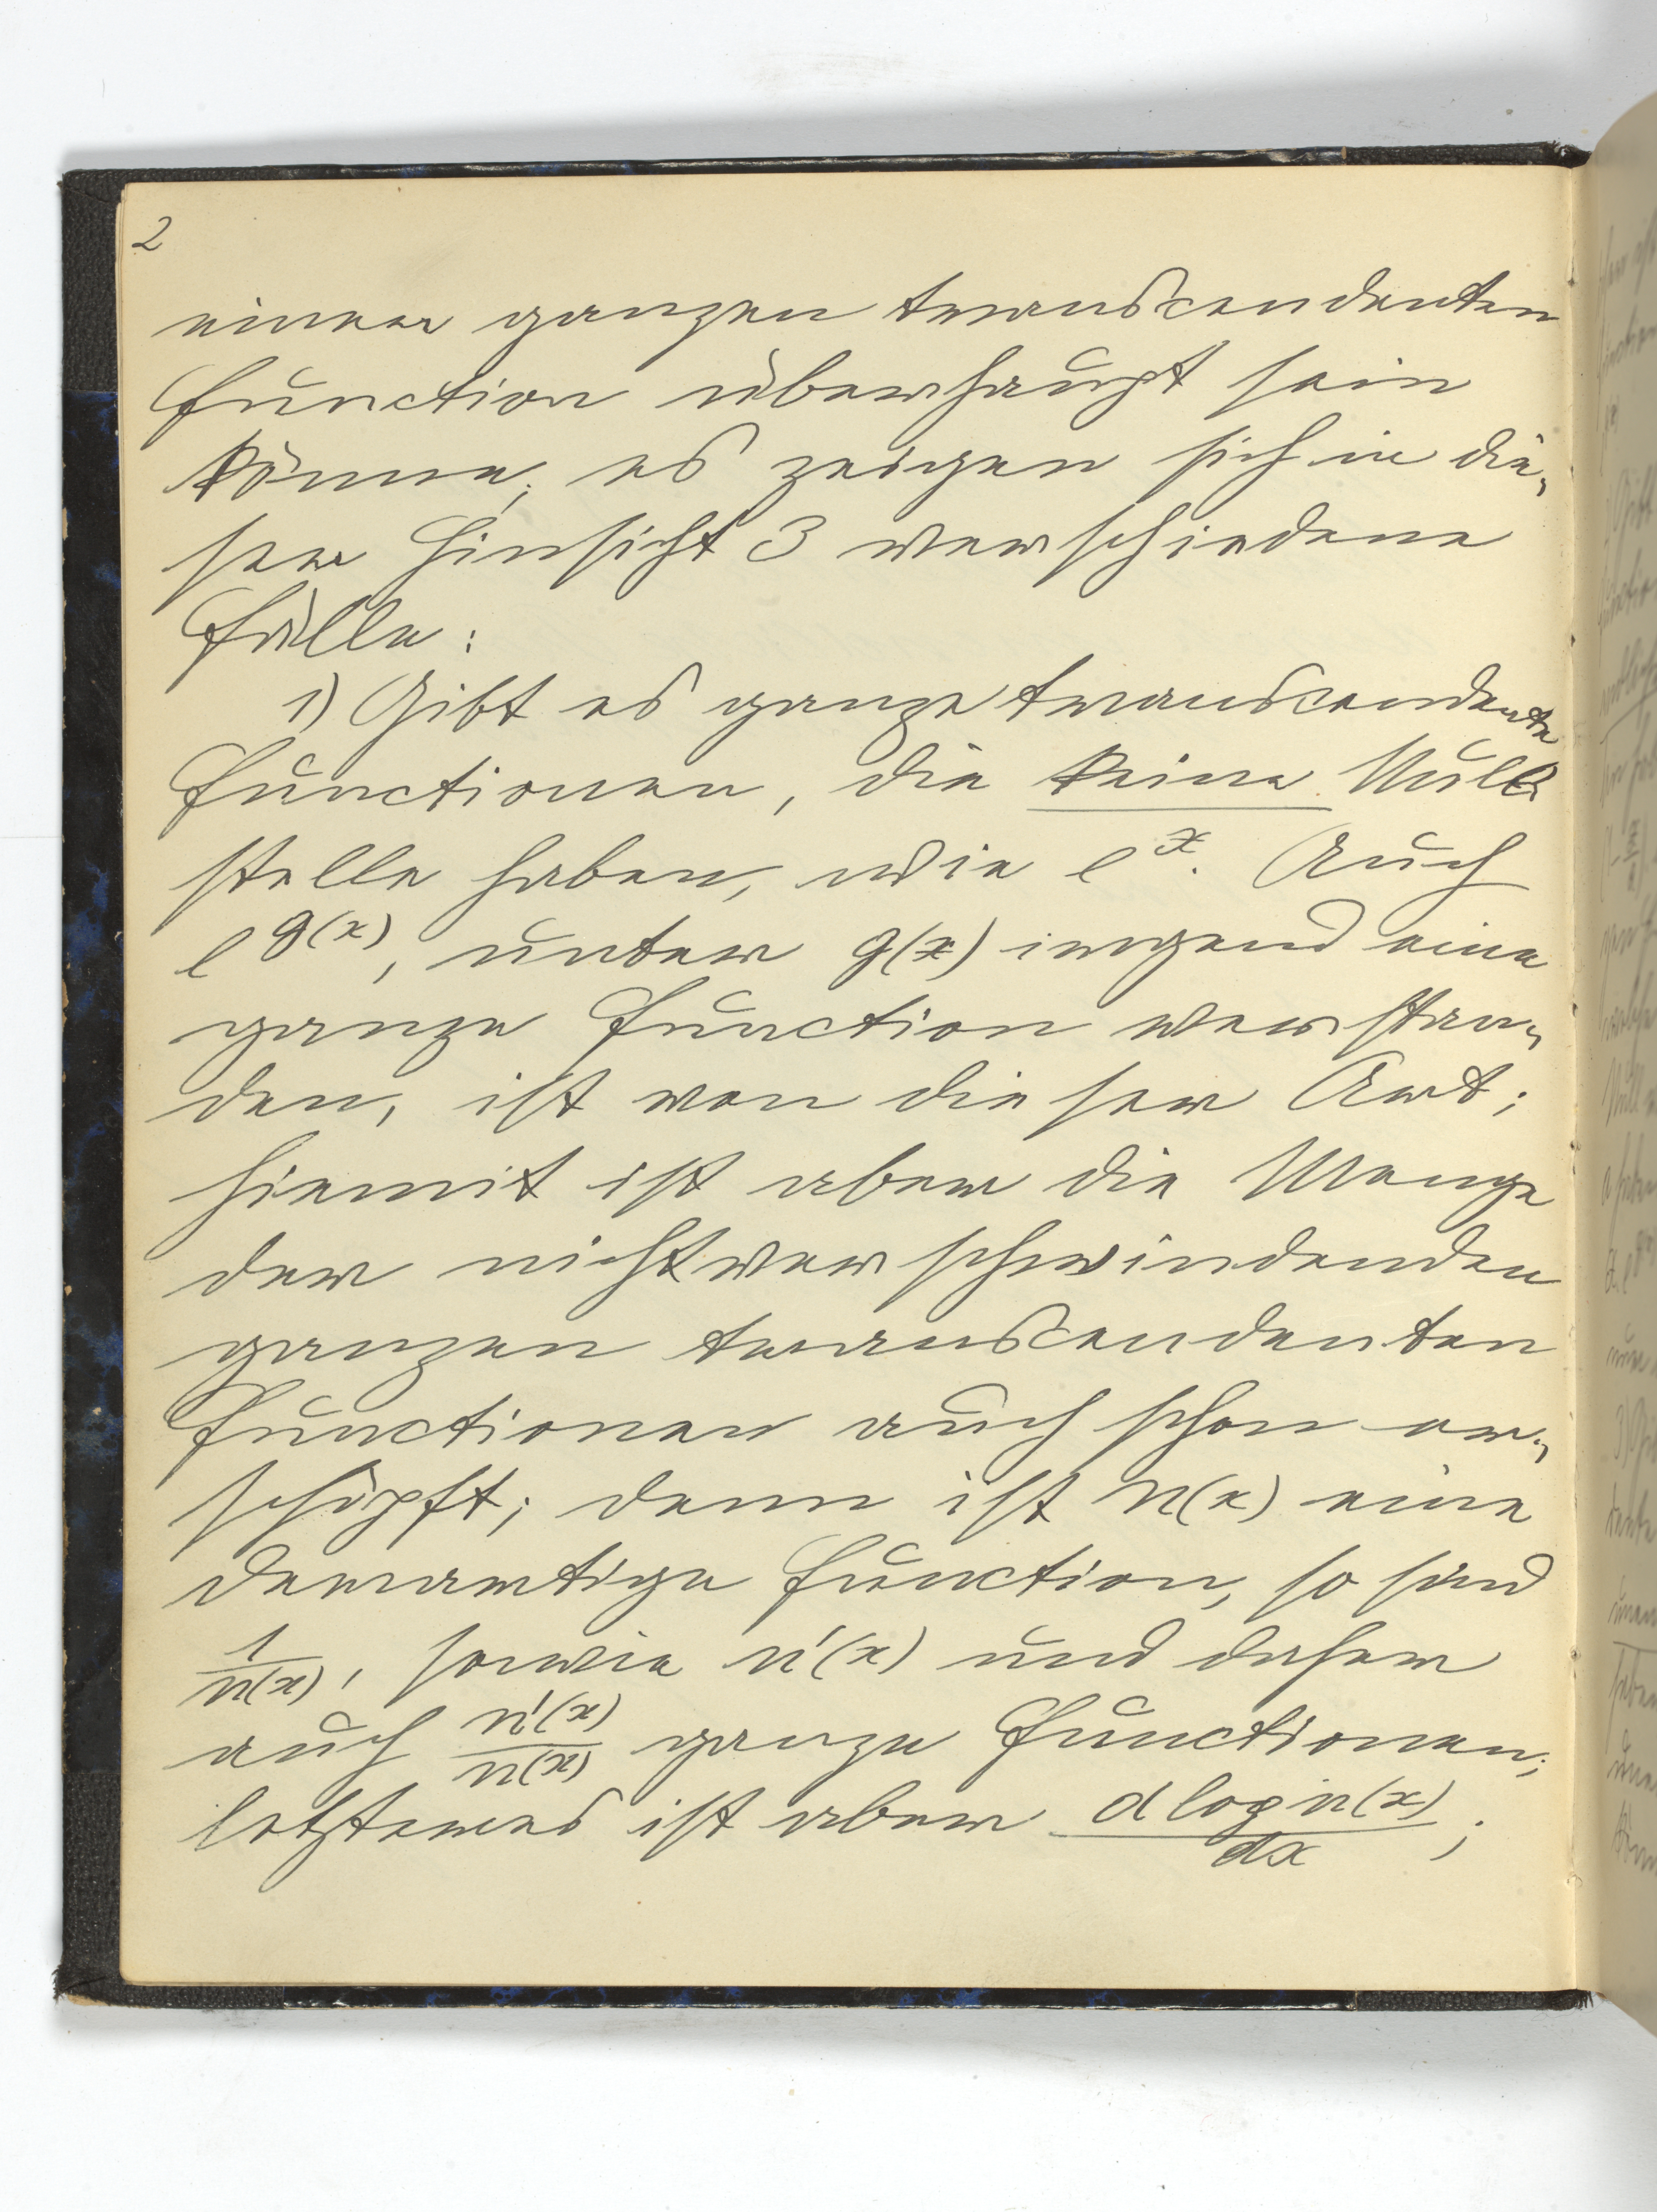 2
einer ganzen transcendenten
Function überhaupt sein
könne; es zeigen sich in die-
ser Hinsicht 3 verschiedene
Fälle:
1) Gibt es ganze transcendente
Functionen, die keine Null-
stelle haben, wie e^x. Auch
e^g(x), unter g(x) irgend eine
ganze Function verstan-
den, ist von dieser Art;
hiemit ist aber die Menge
der nichtverschwindenden
ganzen transcendenten
Functionen auch schon er-
schöpft; denn ist n(x) eine
derartige Function, so sind
1/n(x), sowie n'(x) und daher
auch n'(x)/n(x) ganze Functionen;
letzteres ist aber d log n(x)/dx;